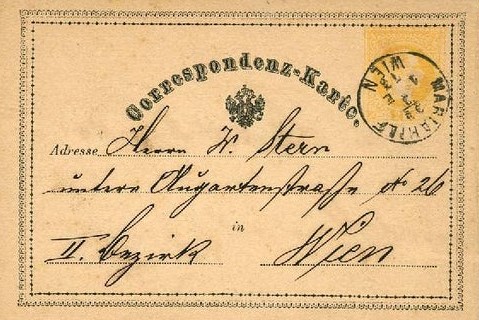 Correspondenz-Karte.
MARIAHILF
WIEN
Adresse Herrn W. Stern
untere Augartenstrasse No 26
in
II. Bezirk Wien